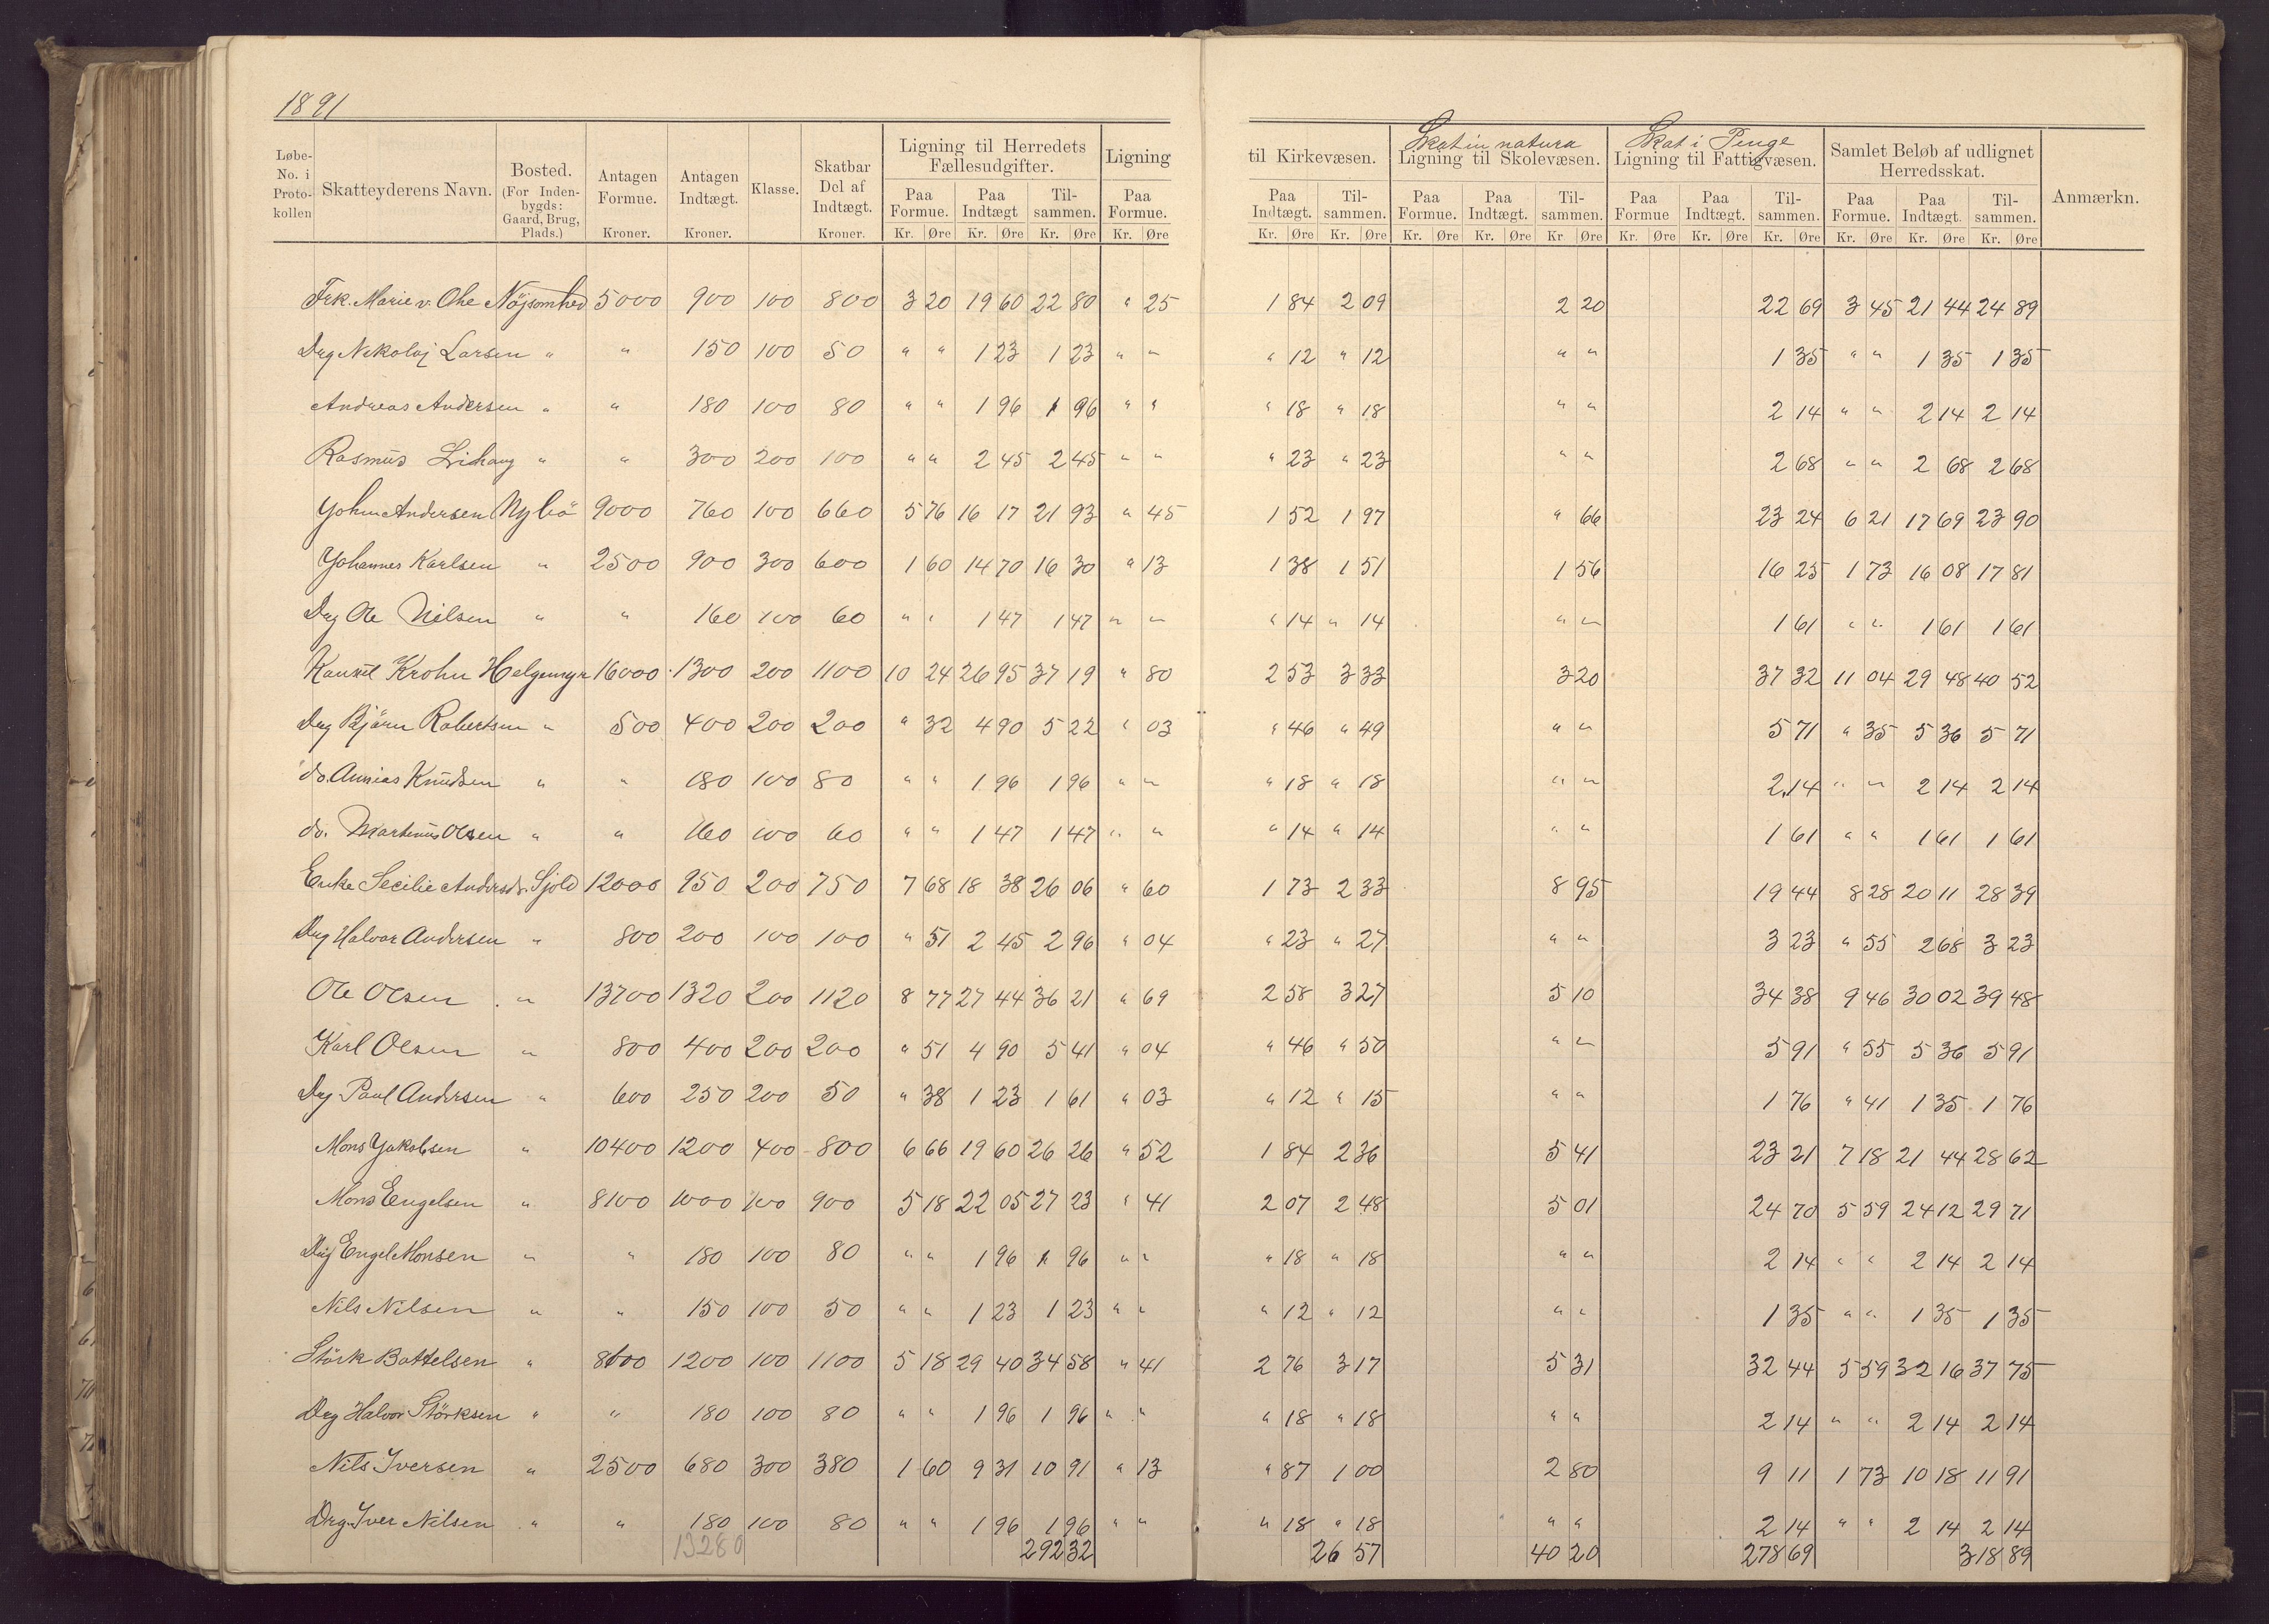 1891
Løbe-No. i Proto-kollen | Skatteyderens Navn. | Bosted. (For Inden-bygds: Gaard, Brug, Plads.) | Antagen Formue. Kroner. | Antagen Indtægt. Kroner. | Klasse. | Skatbar Del af Indtægt. Kroner. | Ligning til Herredets Fællesudgifter. Paa Formue. Kr. Øre | Paa Indtægt Kr. Øre | Til-sammen. Kr. Øre | Ligning Paa Formue. Kr. Øre | til Kirkevæsen. Paa Indtægt. Kr. Øre | Til-sammen. Kr. Øre | Skat in natura Ligning til Skolevæsen. Paa Formue. Kr. Øre | Paa Indtægt. Kr. Øre | Til-sammen. Kr Øre | Skat i Penge Ligning til Fattigvæsen. Paa Formue Kr. Øre | Paa Indtægt. Kr. Øre | Til-sammen. Kr. Øre | Samlet Beløb af udlignet Herredsskat. Paa Formue. Kr. Øre | Paa Indtægt. Kr. Øre | Til-sammen. Kr. Øre | Anmærkn.
Frk. Marie v. Ohe Nöjsomhed 5000 900 100 800 3 20 19 60 22 80 " 25 1 84 2 09 2 20 22 69 3 45 21 44 24 89
Drg Nikolaj Larsen " " 150 100 50 " " 1 23 1 23 " " " 12 " 12 " " 1 35 " " 1 35 1 35
Andreas Andersen " " 180 100 80 " " 1 96 1 96 " " " 18 " 18 " " 2 14 " " 2 14 2 14
Rasmus Lihaug " " 300 200 100 " " 2 45 2 45 " " " 23 " 23 " " 2 68 " " 2 68 2 68
Andersen Nybö 9000 760 100 660 5 76 16 17 21 93 " 45 1 52 1 97 " 66 23 24 6 21 17 69 23 90
Johannes Karlsen " 2500 900 300 600 1 60 14 70 16 30 " 13 1 38 1 51 1 56 16 25 1 73 16 08 17 81
Drg Ole Nilsen " " 160 100 60 " " 1 47 1 47 " " " 14 " 14 " " 1 61 " " 1 61 1 61
Krohn Helgemyr 16000 1300 200 1100 10 24 26 95 37 19 " 80 2 53 3 33 3 20 37 32 11 04 29 48 40 52
Drg Björn Robertsen " 500 400 200 200 " 32 4 90 5 22 " 03 " 46 " 49 " " 5 71 " 35 5 36 5 71
do. Knudsen " " 180 100 80 " " 1 96 1 96 " " " 18 " 18 " " 2 14 " " 2 14 2 14
do. Martinus Olsen " " 160 100 60 " " 1 47 1 47 " " " 14 " 14 " " 1 61 " " 1 61 1 61
Enke Secilie Andersdr. Sjold 12000 950 200 750 7 68 18 38 26 06 " 60 1 73 2 33 8 95 19 44 8 28 20 11 28 39
Drg Halvor Andersen " 800 200 100 100 " 51 2 45 2 96 " 04 " 23 " 27 " " 3 23 " 55 2 68 3 23
Ole Olsen " 13700 1320 200 1120 8 77 27 44 36 21 " 69 2 58 3 27 5 10 34 38 9 46 30 02 39 48
Karl Olsen " 800 400 200 200 " 51 4 90 5 41 " 04 " 46 " 50 " " 5 91 " 55 5 36 5 91
Drg Paul Andersen " 600 250 200 50 " 38 1 23 1 61 " 03 " 12 " 15 " " 1 76 " 41 1 35 1 76
Mons Jakobsen " 10400 1200 400 800 6 66 19 60 26 26 " 52 1 84 2 36 5 41 23 21 7 18 21 44 28 62
Mons Engelsen " 8100 1000 100 900 5 18 22 05 27 23 " 41 2 07 2 48 5 01 24 70 5 59 24 12 29 71
Drg Engel Monsen " " 180 100 80 " " 1 96 1 96 " " " 18 " 18 " " 2 14 " " 2 14 2 14
Nils Nilsen " " 150 100 50 " " 1 23 1 23 " " " 12 " 12 " " 1 35 " " 1 35 1 35
Störk Battelsen " 8100 1200 100 1100 5 18 29 40 34 58 " 41 2 76 3 17 5 31 32 44 5 59 32 16 37 75
Drg Halvor Störksen " " 180 100 80 " " 1 96 1 96 " " " 18 " 18 " " 2 14 " " 2 14 2 14
Nils Iversen " 2500 680 300 380 1 60 9 31 10 91 " 13 " 87 1 00 2 80 9 11 1 73 10 18 11 91
Drg Iver Nilsen " " 180 100 80 " " 1 96 1 96 " " " 18 " 18 " " 2 14 " " 2 14 2 14
13280 292 32 26 57 40 20 278 69 318 89